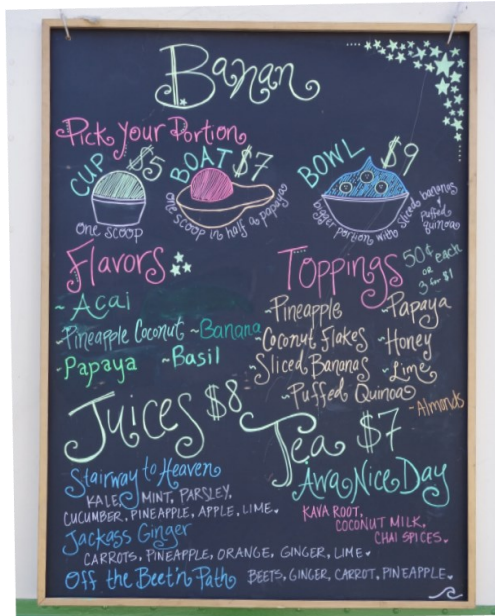 Banan
Pick Your Portion
CUP $5 BOAT $7 BOWL $9
one scoop
one scoop in half a papaya
bigger portion with sliced bananas & puffed quinoa
Flavors
~Acai
~Pineapple Coconut ~Banana
~Papaya ~Basil
Toppings 50¢ each or 3 for $1
~Pineapple ~Papaya
~Coconut Flakes ~Honey
~Sliced Bananas ~Lime
~Puffed Quinoa ~Almonds
Juices $8
Stairway to Heaven
KALE, MINT, PARSLEY,
CUCUMBER, PINEAPPLE, APPLE, LIME.
Jackass Ginger
CARROTS, PINEAPPLE, ORANGE, GINGER, LIME.
Off the Beet'n Path BEETS, GINGER, CARROT, PINEAPPLE.
Tea $7
Awa Nice Day
KAVA ROOT,
COCONUT MILK,
CHAI SPICES.